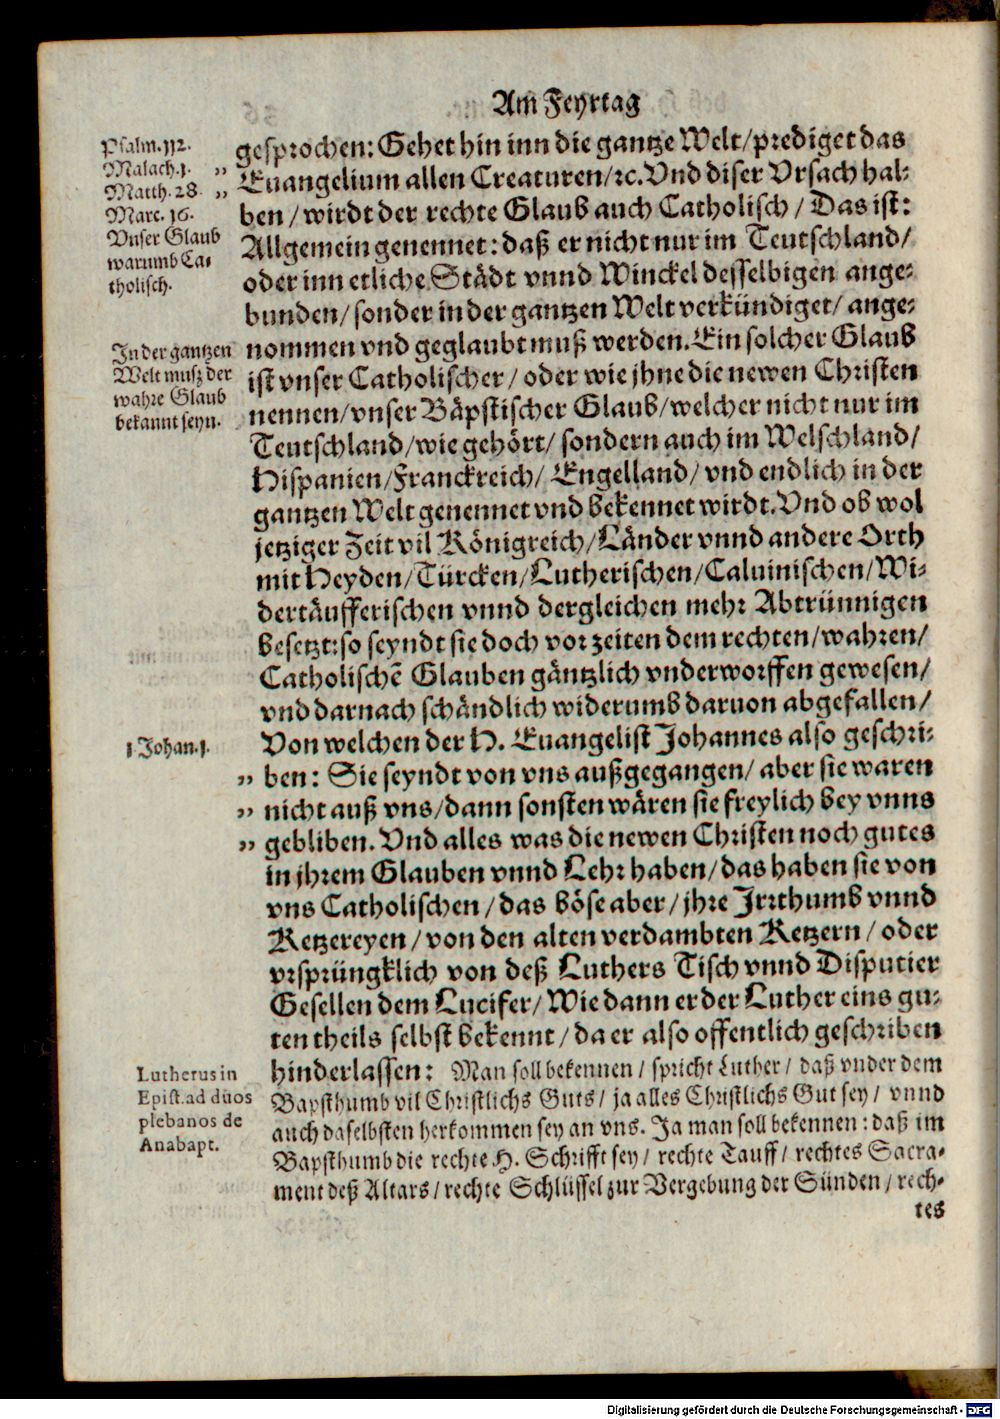 Am Feyrtag
Psalm. 112.
Malach. 1.
Matth. 28.
Marc. 16.
Vnser Glaub
warumb Ca-
tholisch.
In der gantzen
Welt musz der
wahre Glaub
bekannt seyn.
1 Johan. 1.
Lutherus in
Epist. ad duos
plebanos de
Anabapt.
gesprochen: Gehet hin inn die gantze Welt/prediget das
„ Euangelium allen Creaturen/ꝛc. Vnd diser Vrsach hal-
„ ben/wirdt der rechte Glaub auch Catholisch/Das ist:
Allgemein genennet: daß er nicht nur im Teutschland/
oder inn etliche Städt vnnd Winckel desselbigen ange-
bunden/sonder in der gantzen Welt verkündiget/ange-
nommen vnd geglaubt muß werden. Ein solcher Glaub
ist vnser Catholischer/oder wie jhne die newen Christen
nennen/vnser Bäpstischer Glaub/welcher nicht nur im
Teutschland/wie gehört/sondern auch im Welschland/
Hispanien/Franckreich/Engelland/vnd endlich in der
gantzen Welt genennet vnd bekennet wirdt. Vnd ob wol
jetziger Zeit vil Königreich/Länder vnnd andere Orth
mit Heyden/Türcken/Lutherischen/Caluinischen/Wi-
dertäufferischen vnnd dergleichen mehr Abtrünnigen
besetzt: so seyndt sie doch vor zeiten dem rechten/wahren/
Catholischē Glauben gäntzlich vnderworffen gewesen/
vnd darnach schändlich widerumb daruon abgefallen/
Von welchen der H. Euangelist Johannes also geschri-
„ ben: Sie seyndt von vns außgegangen/aber sie waren
„ nicht auß vns/dann sonsten wären sie freylich bey vnns
„ gebliben. Vnd alles was die newen Christen noch gutes
in jhrem Glauben vnnd Lehr haben/das haben sie von
vns Catholischen/das böse aber/jhre Irrthumb vnnd
Ketzereyen/von den alten verdambten Ketzern/oder
vrsprüngklich von deß Luthers Tisch vnnd Disputier
Gesellen dem Lucifer/Wie dann er der Luther eins gu-
ten theils selbst bekennt/da er also offentlich geschriben
hinderlassen: Man soll bekennen/spricht Luther/daß vnder dem
Bapsthumb vil Christlichs Guts/ja alles Christlichs Gut sey/vnnd
auch daselbsten herkommen sey an vns. Ja man soll bekennen: daß im
Bapsthumb die rechte H. Schrifft sey/rechte Tauff/rechtes Sacra-
ment deß Altars/rechte Schlüssel zur Vergebung der Sünden/rech-
tes
Digitalisierung gefördert durch die Deutsche Forschungsgemeinschaft - DFG